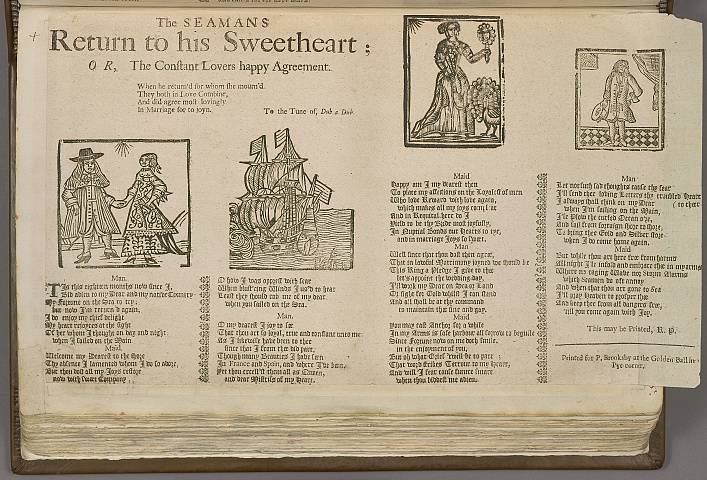 The SEAMANS
Return to his Sweetheart;
OR, The Constant Lovers happy Agreement.
When he return'd for whom she mourn'd.
They both in Love Combine,
And did agree most lovingly
In Marriage for to joyn.
To the Tune of, Dub a Dub.
Man.
This is eighteen months now since I,
Bid adieu to my Dear and my native Country
My Fortune on the Sea to try,
but now I'm return'd again,
I do enjoy my chief delight
My heart rejoyces at the sight
Of her whom I thought on day and night
when I sailed on the Main.
Maid.
Welcome my Dearest to the shore
Thy absence I lamented whom I do so adore,
But thou dost all my Joys restore
now with sweet Company,
O how I was opprest with fear
When blust'ring Winds I us'd to hear
Least they should rob me of my dear
when you sailed on the Sea.
Man.
O my dearest I joy to see
That thou art so loyal, true and constant unto me
As I likewise have been to thee
since that I from thee did part,
Though many Beauties I have seen
In France and Spain, and where I've been,
Yet thou excell'st them all as Queen,
and dear Mistriss of my Heart.
Maid
Happy am I my dearest then
To place my affections on the Loyallest of men
Who love Reward with love again,
which makes all my joys compleat
And in Requital here do I
Yield to be thy Bride most joyfully,
In Nuptial Bonds our Hearts to tye,
and in marriage Joys so sweet.
Man
Well since that thou dost then agree,
That in lawful Matrimony joyned we should be
This Ring a Pledge I give to thee
let's appoint the wedding day,
I'll work my Dear on Sea or Land
Or fight for Gold whilst I can stand
And all shall be at thy command
to maintain thee fine and gay.
Maid
You may cast Anchor for a while
In my Arms as safe harbour all sorrow to beguile
Since Fortune now on me doth smile.
in the enjoyment of you,
But oh what Grief 'twill be to part;
That word strikes Terrour to my Heart,
And will I fear cause future smart
when thou biddest me adieu.
Man
Let not such sad thoughts cause thy fear
I'll send thee loving Letters thy troubled Heart
I always shall think on my Dear (to chear
when I'm sailing on the Main,
I'le Plow the curled Ocean o're,
And sail from foraign shore to shore,
To bring thee Gold and Silver store
when I do come again.
Maid
But while thou art here free from harms
All night I'le infold and embrace thee in my arms
Where no raging Waves nor Storm Alarms
which Seamen do oft annoy
And when that thou art gone to Sea
I'll pray Heaven to prosper thee
And keep thee from all dangers free,
till you come again with Joy.
This may be Printed, R. P.
Printed for P. Brooksby at the Golden Ball in
Pye corner.